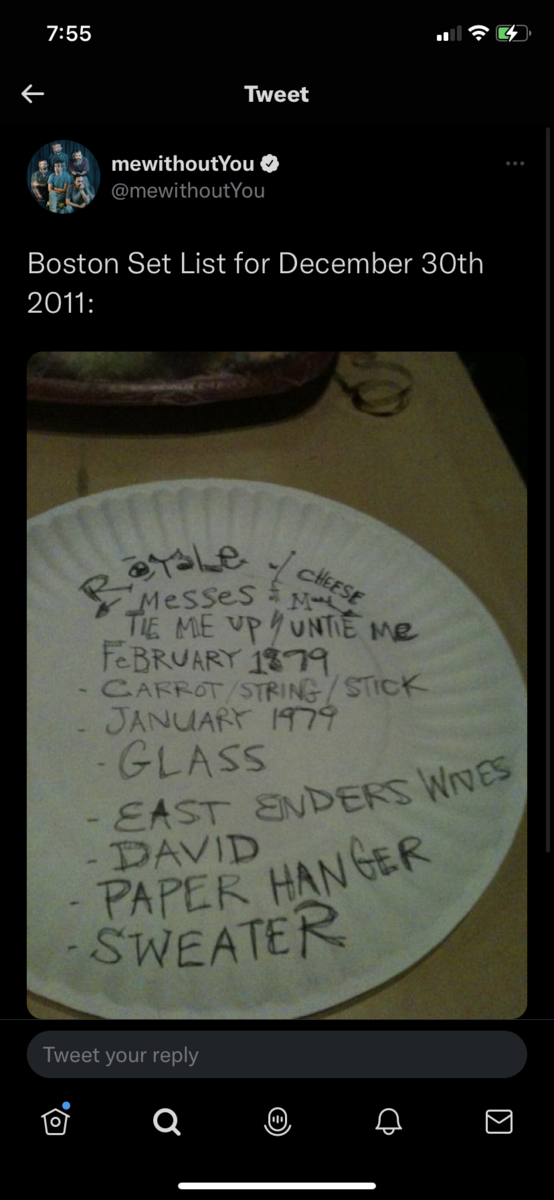 7:55
Tweet
mewithoutYou
@mewithoutYou
Boston Set List for December 30th
2011:
ROYALE w/ CHEESE
MESSES
TIE ME UP // UNTIE Me
FeBRUARY 1879
- CARROT/STRING/STICK
- JANUARY 1979
- GLASS
- EAST ENDERS WIVES
- DAVID
- PAPER HANGER
- SWEATER
Tweet your reply